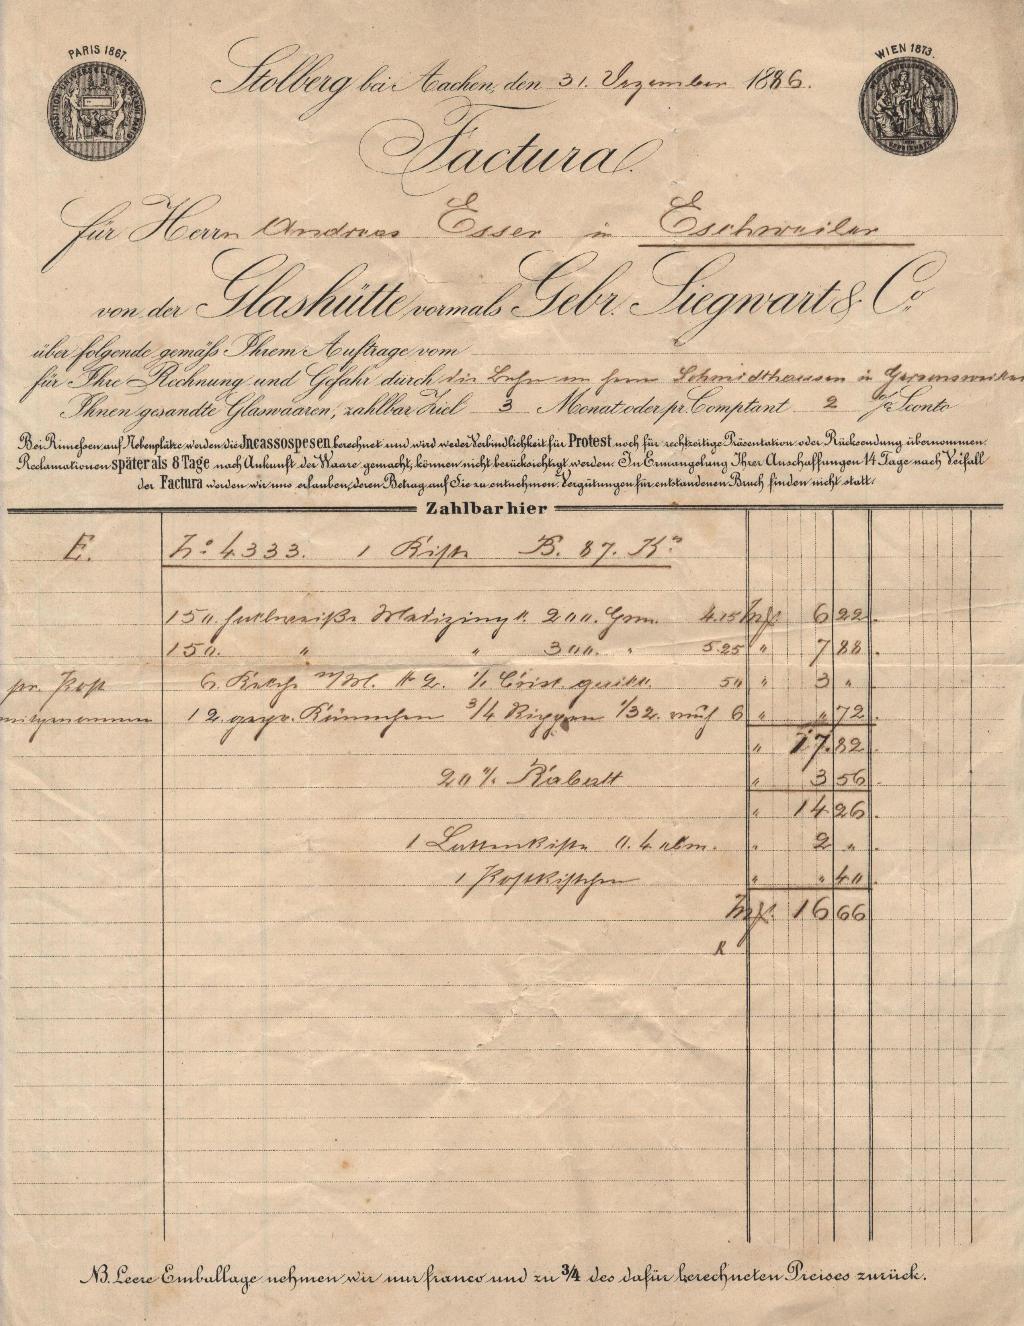 PARIS 1867.
WIEN 1873.
Stolberg bei Aachen, den 31. Dezember 1886.
Factura
für Herrn Andreas Esser in Eschweiler
von der Glashütte vormals Gebr. Siegwart & Co.
über folgende gemäfs Ihrem Auftrage vom
für Ihre Rechnung und Gefahr durch die Bahn an Herrn Schmidthausen in
Ihnen gesandte Glaswaaren, zahlbar Ziel 3 Monat oder pr. Comptant 2 % Sconto
Bei Rimefsen auf Nebenplätze werden die Incassospesen berechnet und wird weder Verbindlichkeit für Protest noch für rechtzeitige Präsentation oder Rücksendung übernommen.
Reclamationen später als 8 Tage nach Ankunft der Waare gemacht, können nicht berücksichtigt werden. In Ermangelung Ihrer Anschaffungen 14 Tage nach Verfall
der Factura werden wir uns erlauben, deren Betrag auf Sie zu entnehmen. Vergütungen für entstandenen Bruch finden nicht statt.
Zahlbar hier
E. No 4333. 1 Kiste B. 87. Ko
150. halbweiße 200. Grm. 4.15 Mk 6 22.
150. " " 300. " 5.25 " 7 88.
pr. Post 6. 50 " 3 ".
mitgenommen 12. gepr. Kännchen 3/4 Rippen 1/32. 6 " " 72.
" 17.82.
20 % Rabatt " 3 56.
" 14 26.
1 Lattenkiste " 2 ".
1 Postkistchen " " 40.
Mk. 16 66
R
NB. Leere Emballage nehmen wir nur franco und zu 3/4 des dafür berechneten Preises zurück.